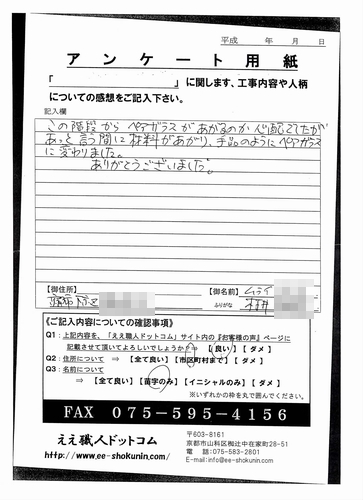 平成　　年　　月　　日
アンケート用紙
「　　　　　　　　　　」に関します、工事内容や人柄
についての感想をご記入下さい。
記入欄
この階段からペアガラスがあがるのか心配してたが
あっと言う間に材料があがり、手品のようにペアガラス
に変わりました。
ありがとうございました。
【御住所】　　【御名前】ムライ
ふりがな　村井
《ご記入内容についての確認事項》
Q1：上記内容を、「ええ職人ドットコム」サイト内の『お客様の声』ページに
記載させて頂いてよろしいでしょうか？⇒【良い】【ダメ】
Q2：住所について　⇒　【全て良い】【市区町村まで】【ダメ】
Q3：名前について
⇒【全て良い】【苗字のみ】【イニシャルのみ】【ダメ】
※いずれかの枠を丸で囲んでください。
FAX　075-595-4156
ええ職人ドットコム
http://www.ee-shokunin.com/
〒603-8161
京都市山科区御辻中在家町28-51
電　話：075-583-2801
E-mail:info@ee-shokunin.com